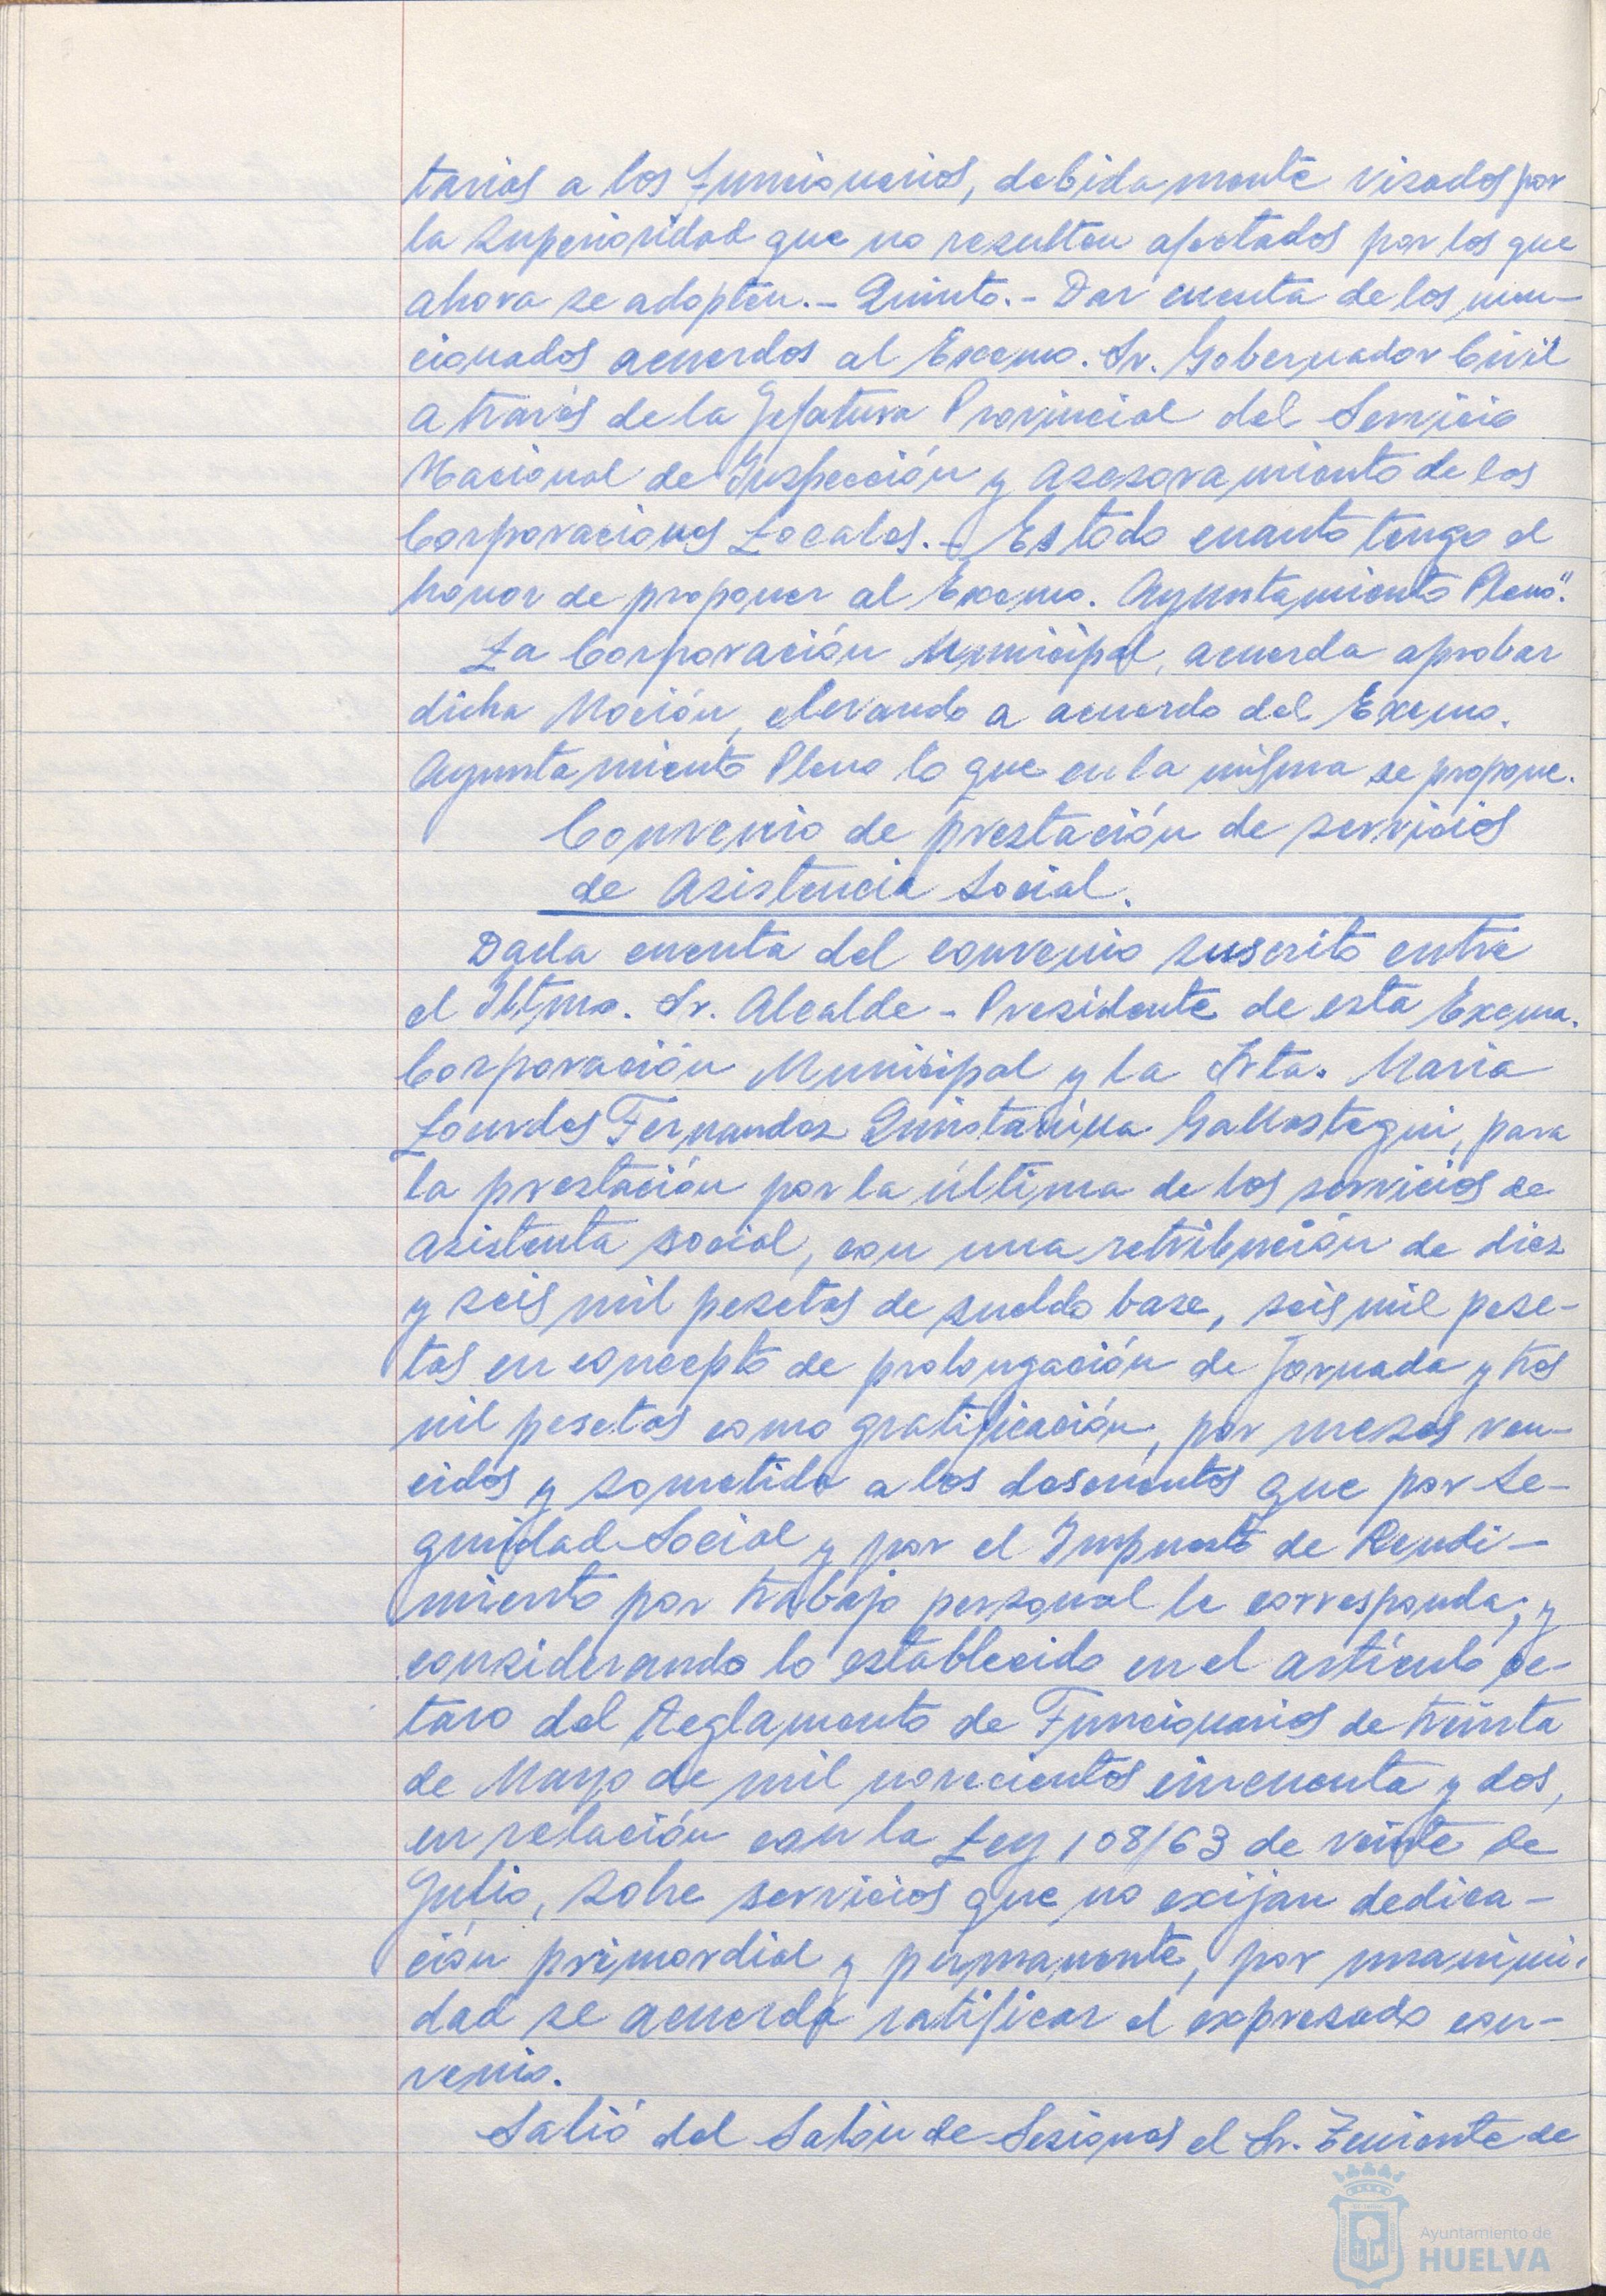 tarios a los funcionarios, debidamente visados por
la Superioridad que no resulten afectados por los que
ahora se adopten.- Quinto.- Dar cuenta de los men-
cionados acuerdos al Excmo. Sr. Gobernador Civil
a través de la Jefatura Provincial del Servicio
Nacional de Inspección y asesoramiento de las
Corporaciones Locales.- Es todo cuanto tengo el
honor de proponer al Excmo. Ayuntamiento Pleno".
La Corporación Municipal, acuerda aprobar
dicha Moción, elevando a acuerdo del Excmo.
Ayuntamiento Pleno lo que en la misma se propone.
Convenio de prestación de servicios
de Asistencia Social.
Dada cuenta del convenio suscrito entre
el Iltmo. Sr. Alcalde - Presidente de esta Excma.
Corporación Municipal y la Srta. Maria
Lourdes Fernandez Quintanilla Gallastegui, para
la prestación por la última de los servicios de
asistenta social, con una retribución de diez
y seis mil pesetas de sueldo base, seis mil pese-
tas en concepto de prolongación de jornada y tres
mil pesetas como gratificación, por meses ven-
cidos y sometido a los descuentos que por Se-
guridad Social y por el Impuesto de Rendi-
miento por trabajo personal le corresponda; y
considerando lo establecido en el artículo oc-
tavo del Reglamento de Funcionarios de treinta
de Mayo de mil novecientos cincuenta y dos,
en relación con la Ley 108/63 de veinte de
Julio, sobre servicios que no exijan dedica-
ción primordial y permanente, por unanimi-
dad se acuerda ratificar el expresado con-
venio.
Salió del Salón de Sesiones el Sr. Teniente de
Ayuntamiento de
HUELVA